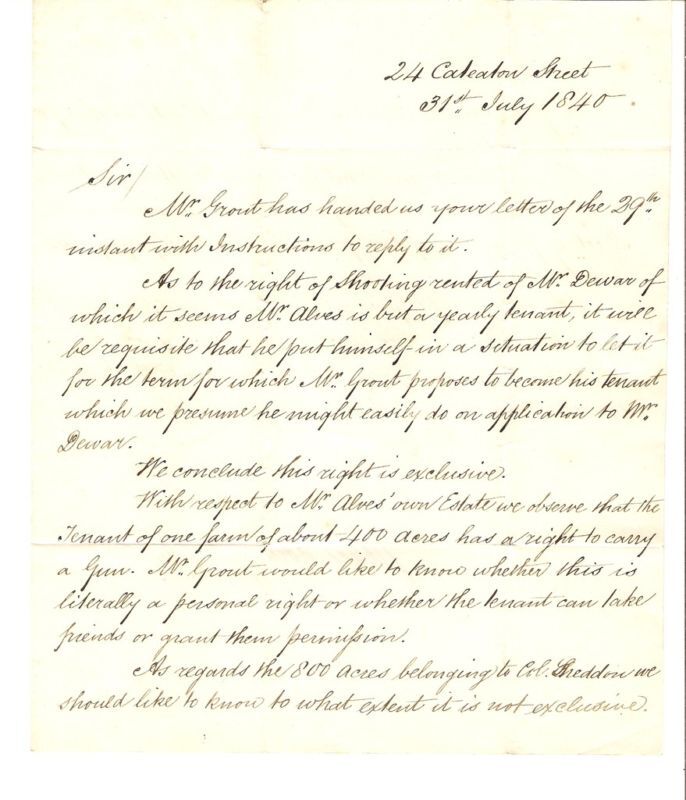 24 Cateaton Street
31st July 1840
Sir/
Mr. Grout has handed us your letter of the 29th
instant with Instructions to reply to it.
As to the right of Shooting rented of Mr. Dewar of
which it seems Mr. Alves is but a yearly tenant, it will
be requisite that he put himself in a situation to let it
for the term for which Mr. Grout proposes to become his tenant
which we presume he might easily do on application to Mr.
Dewar.
We conclude this right is exclusive.
With respect to Mr. Alves' own Estate we observe that the
Tenant of one farm of about 400 acres has a right to carry
a Gun. Mr. Grout would like to know whether this is
literally a personal right or whether the tenant can take
friends or grant them permission.
As regards the 800 acres belonging to Col. Sheddon we
should like to know to what extent it is not exclusive.